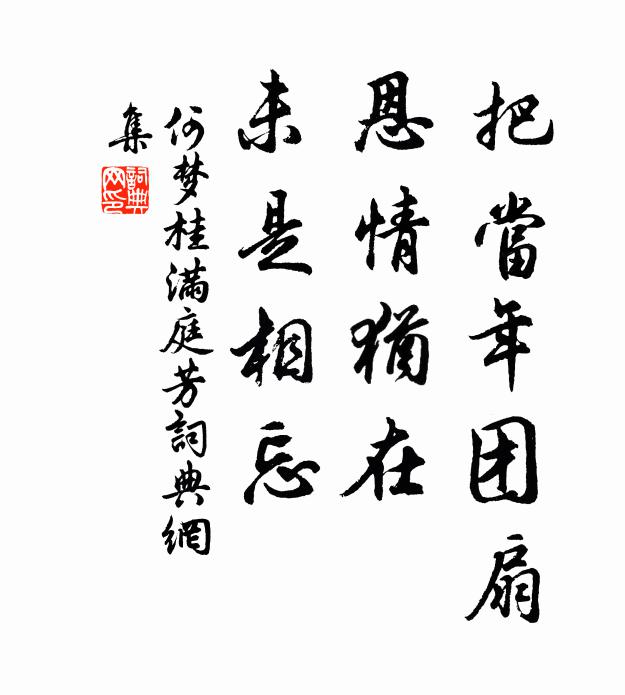 把當年团扇
恩情猶在
未是相忘
何梦桂满庭芳詞典網
集
詞典
网印